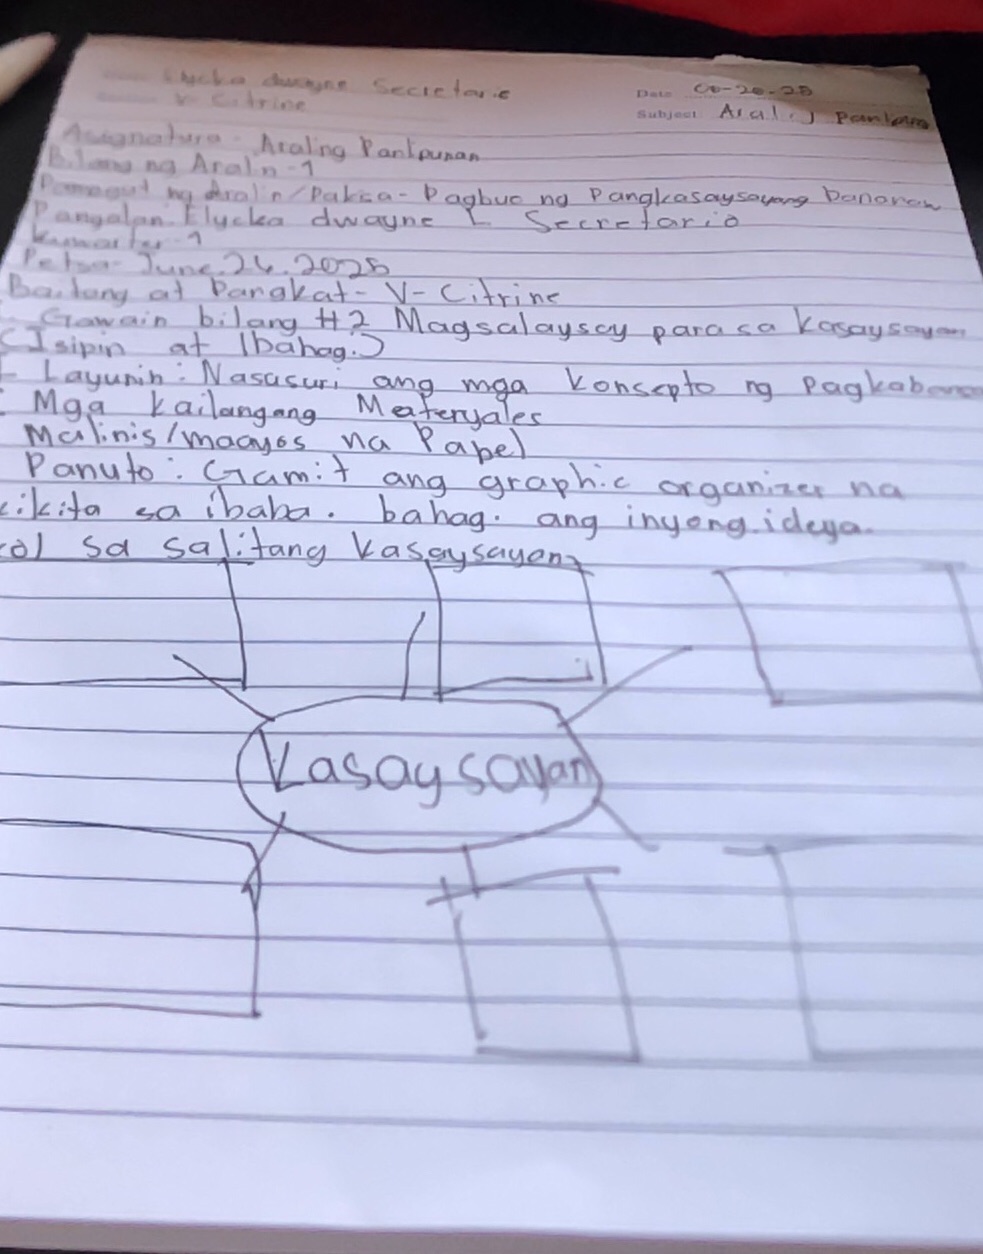 Elycka dwayne Secretario
V- Citrine
Date 06-26-25
Subject Araling Panlipunan
Asignatura - Araling Panlpunan
Bilang ng Aralin -1
Pamagat ng Aralin/Paksa- Pagbuo ng Pangkasaysayang Pananaw
Pangalan: Elycka dwayne L Secretario
kuwarter-1
Petsa- June.26.2025
Baitang at Pangkat- V- Citrine
Gawain bilang #2 Magsalaysay para sa kasaysayan
(Isipin at Ibahag.)
Layunin: Nasusuri ang mga konsepto ng pagkabansa
Mga kailangang Materyales
Malinis/maayos na Papel
Panuto: Gamit ang graphic organizer na
kikita sa ibaba. bahag. ang inyong ideya.
kol sa salitang kasaysayan
Kasaysayan